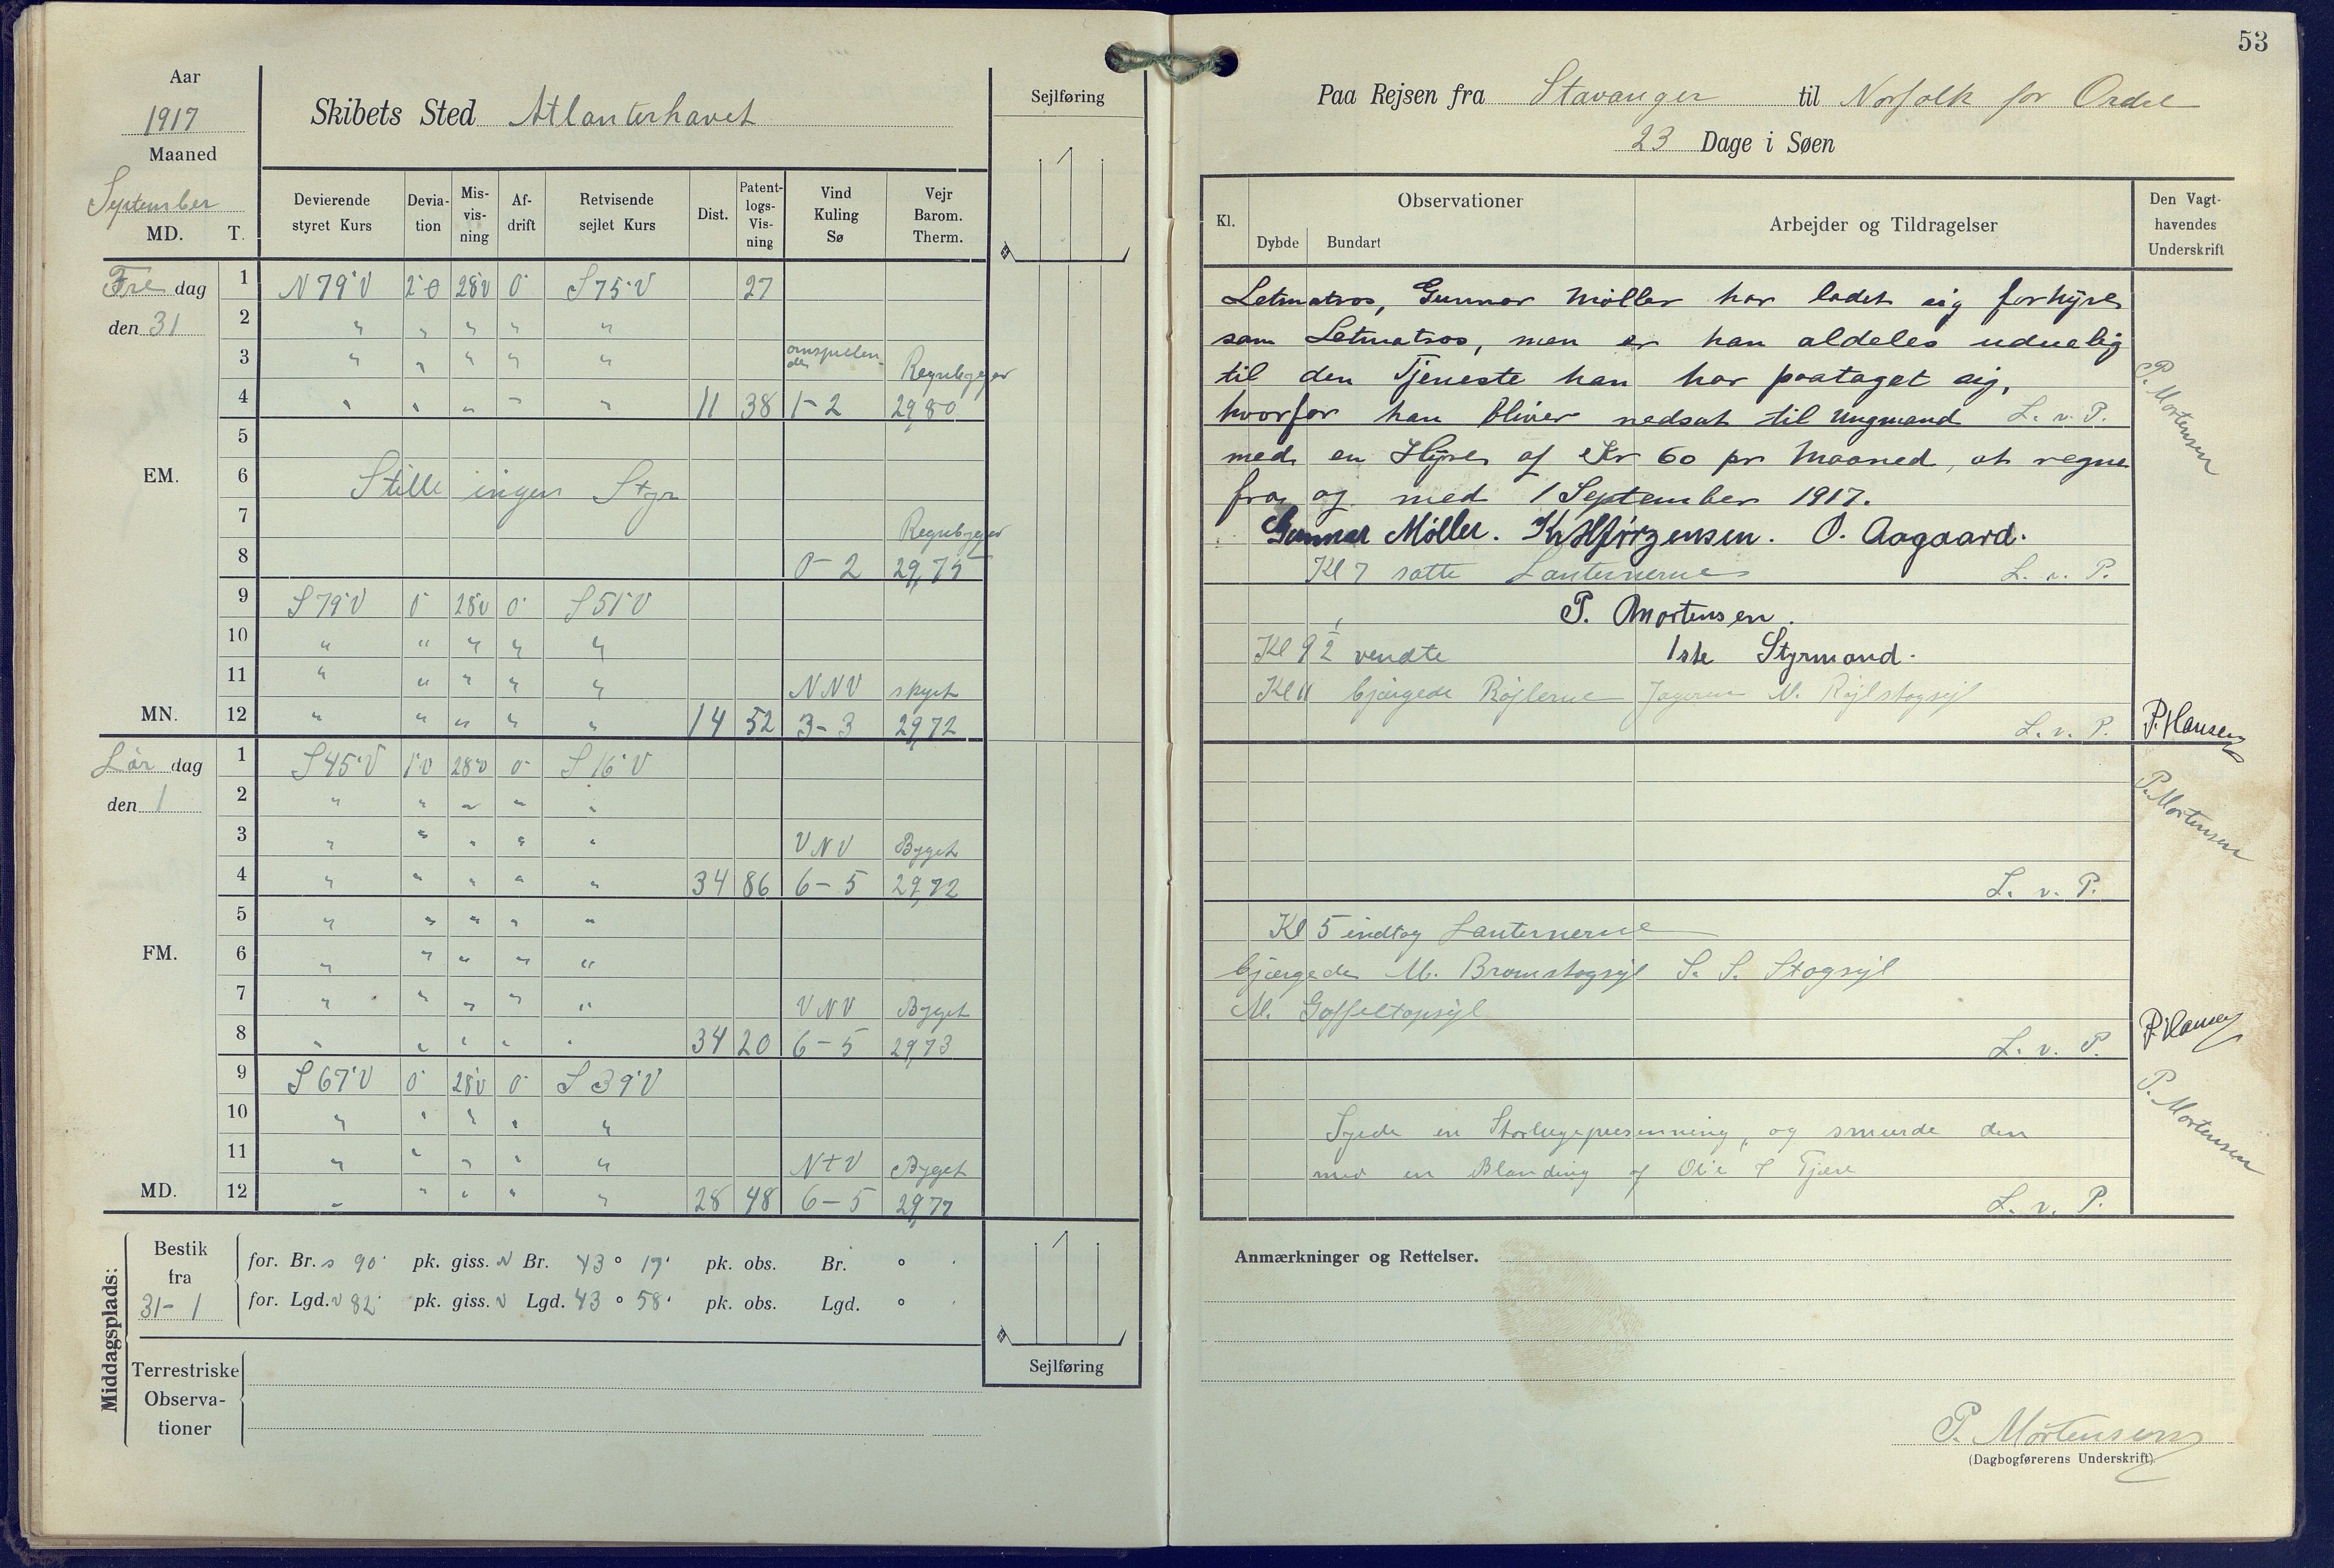 Aar
1917
Maaned
September
MD. T.
Skibets Sted Atlanterhavet
Sejlføring
Devierende styret Kurs
Deviation
Misvisning
Afdrift
Retvisende sejlet Kurs
Dist.
Patentlogs-Visning
Vind Kuling Sø
Vejr Barom. Therm.
Fredag
den 31
1 N79°V 2°Ø 28°V 0° S75°V 27
2 " " " " "
3 " " " " " omspillende Regnbyger
4 " " " " " 11 38 1-2 29,80
5
EM.
6 Stille ingen Styr
7 Regnbyger
8 0-2 29,75
9 S79°V 0° 28°V 0° S51°V
10 " " " " "
11 " " " " " NNV skyet
MN. 12 " " " " " 14 52 3-3 29,72
Lørdag
den 1
1 S45°V 1°V 28°V 0° S16°V
2 " " " " "
3 " " " " " VNV Byget
4 " " " " " 34 86 6-5 29,72
5 " " " " "
FM.
6 " " " " "
7 " " " " " VNV Byget
8 " " " " " 34 20 6-5 29,73
9 S67°V 0° 28°V 0° S39°V
10 " " " " "
11 " " " " " NtV Byget
MD. 12 " " " " " 28 48 6-5 29,77
Middagsplads:
Bestik fra 31-1
for. Br. S 90' pk. giss. N Br. 43° 17' pk. obs. Br. ° '
for. Lgd. V 82' pk. giss. V Lgd. 43° 58' pk. obs. Lgd. ° '
Terrestriske Observationer
Sejlføring
53
Paa Rejsen fra Stavanger til Norfolk for Ordre
23 Dage i Søen
Kl.
Observationer
Dybde Bundart
Arbejder og Tildragelser
Den Vagthavendes Underskrift
Letmatros, Gunnar Møller har ladet sig forhyre
som Letmatros, men er han aldeles uduelig
til den Tjeneste han har paataget sig,
hvorfor han bliver nedsat til Ungmand L. v. P.
P. Mortensen
med en Hyre af Kr 60 pr Maaned, at regne
fra og med 1 September 1917.
Gunnar Møller. K Hjørgensen. O. Aagaard.
Kl 7 satte Lanternerne L. v. P.
P. Mortensen.
Kl 9½ vendte 1ste Styrmand.
Kl 11 bjærgede Røjlerne Jageren M. Røjlstagsejl
L. v. P. P. Hansen
P. Mortensen
L. v. P.
Kl 5 indtog Lanternerne
bjærgede M. Bramstagsejl S. S. Stagsejl
M. Gaffeltopsejl
L. v. P. P. Hansen
P. Mortensen
Syede en Storlugepresenning, og smurde den
med en Blanding af Olie & Tjære
L. v. P.
Anmærkninger og Rettelser.
P. Mortensen
(Dagbogførerens Underskrift)